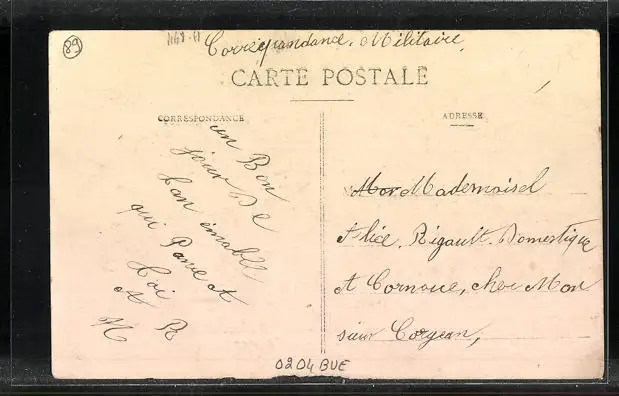 89
1168-11
Correspandance. Militaire
CARTE POSTALE
CORRESPONDANCE
ADRESSE
un Bon
jour De
Ton émable
qui Panse A
Toi
A R
M
Mademaisel
Alice. Rigault. Domestique
A Cornoue, chez Mon
sieur Corgean,
0204 BUE